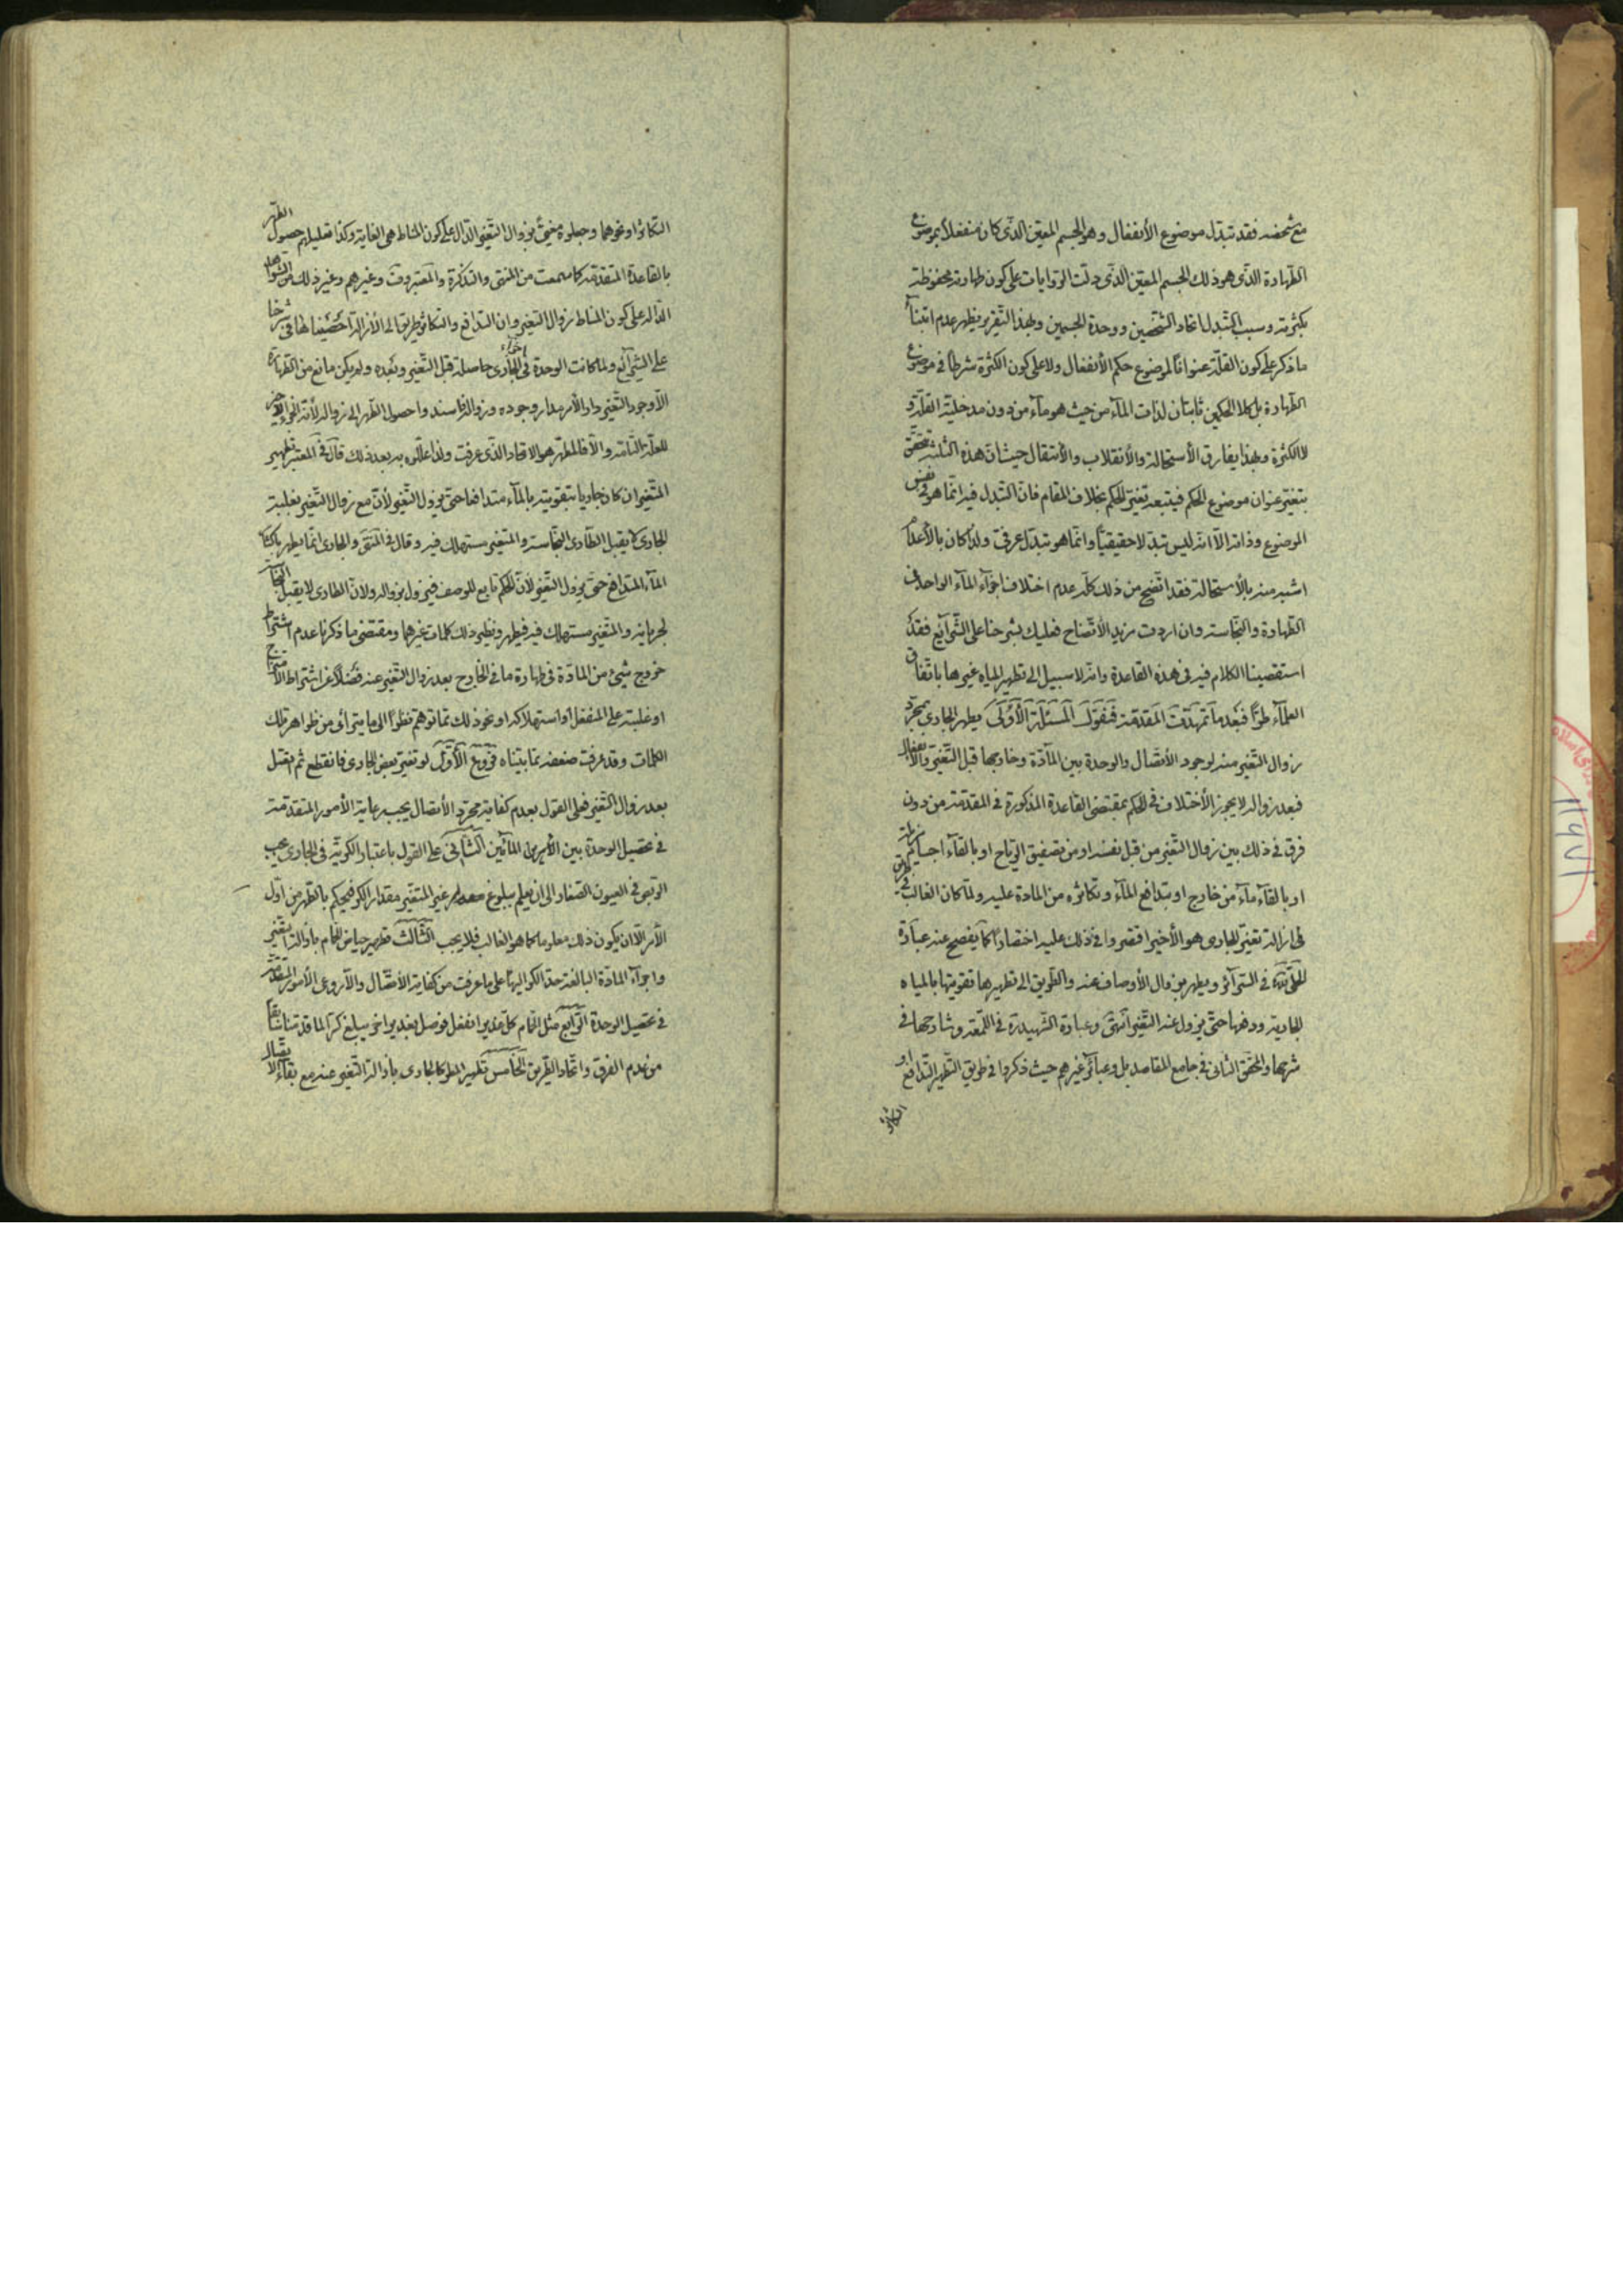 مع شخصه فقد تبدل موضوع الأنفعال وهو الجسم المعيّن الذي كان منفعلا بموضوع
الطهارة الذي هو ذلك الجسم المعيّن الذي دلّت الروايات على كون طهارته محفوظة
بكثرته وسبب التبدل اتحاد الشخصين ووحدة الجسمين وبهذا التقرير يظهر عدم ابتناء
ما ذكر على كون القلّة عنوانا لموضوع حكم الأنفعال ولا على كون الكثرة شرطا في موضوع
الطهارة بل كلا الحكمين ثابتان لذات الماء من حيث هو ماء من دون مدخلية القلّة و
لا الكثرة وبهذا يفارق الأستحالة والأنقلاب والأنتقال حيث انّ هذه الثلثة تتحقق
بتغيّر عنوان موضوع الحكم فيتبعه تغيّر الحكم بخلاف المقام فانّ التبدل فيه انّما هو في نفس
الموضوع وذاته الّا انه ليس تبدّلا حقيقيّا وانّما هو تبدّل عرفيّ ولذا كان بالأعدام
اشبه منه بالأستحالة فقد اتّضح من ذلك كلّه عدم اختلاف اجزاء الماء الواحد في
الطهارة والنجاسة وان اردت مزيد الأتضاح فعليك بشرحنا على الشرائع فقد
استقصينا الكلام فيه في هذه القاعدة وانّه لا سبيل الى تطهير المياه غيرها باتفاق
العلماء طرّا فبعد ما تمهّدت المقدمة فنقول المسئلة الأولى يطهر الجاري بمجرّد
زوال التغير منه لوجود الأتصال والوحدة بين المادّة وخارجها قبل التغيّر والانفعال
فبعد زواله لا يجوز الأختلاف في الحكم بمقتضى القاعدة المذكورة في المقدمة من دون
فرق في ذلك بين زوال التغير من قبل نفسه او من تصفيق الرياح او بالقاء اجسام
او بالقاء ماء من خارج او بتدافع الماء وتكاثره من المادة عليه ولمّا كان الغالب في طريق
في ازالة تغيّر الجاري هو الأخير اقتصروا في ذلك عليه اختصارا كما يفصح عنه عبارة
الحلّي في السرائر ويطهر بزوال الأوصاف عنه والطريق الى تطهيرها تقويتها بالمياه
الجارية ودفعها حتى يزول عنه التغير انتهى وعبارة الشهيد ره في اللمعة وشارحها في
شرحها والمحقق الثاني في جامع المقاصد بل وعبائر غيرهم حيث ذكروا في طريق التطهير التدافع او
التكاثر
التكاثر او نحوهما وجعلوه مغيّى بزوال التغير الدّال على كون المناط هي الغاية وكذا تعليلهم حصول الطهر
بالقاعدة المتقدمة كما سمعت من المنتهى والتذكرة والمعتبر وغيرهم وغير ذلك من الشواهد
الدالة على كون المناط زوال التغير وان التدافع والتكاثر طريق الى الأزالة
على الشرائع ولما كانت الوحدة في اجزاء الجاري حاصلة قبل التغير وبعده ولم يكن مانع من الطهارة
الّا وجود التغير دار الأمر مدار وجوده وزواله
للعلّة التامة والّا فالمطهر هو الاتحاد الذي عرفت ولذا علّلوه به بعد ذلك قال في المعتبر تطهير
المتغير ان كان جاريا بتقويته بالماء متدافعا حتى يزول التغير لأنّ مع زوال التغير بغلبة
الجاري لا يقبل الطاري النجاسة والمتغير مستهلك فيه وقال في المنتهى والجاري انما يطهر باكثار
الماء المتدافع حتى يزول التغير لأنّ الحكم تابع للوصف فيزول بزواله ولأنّ الطاري لا يقبل النجاسة
لجريانه والمتغير مستهلك فيه فيطهر ونظير ذلك كلمات غيرهما ومقتضى ما ذكرنا عدم اشتراط
خروج شيء من المادّة في طهارة ما في الخارج بعد زوال التغير عنه فضلا عن اشتراط الامتزاج
او غلبته على المنفعل او استهلاكه او نحو ذلك ممّا توهم نظرا الى ما يترائى من ظواهر تلك
الكلمات وقد عرفت ضعفه بما بيّناه فروع الأوّل لو تغيّر بعض الجاري فانقطع ثم اتصل
بعد زوال التغير فعلى القول بعدم كفاية مجرّد الأتصال يجب رعاية الأمور المتقدمة
في تحصيل الوحدة بين المائين الثاني على القول باعتبار الكرية في الجاري يجب
التربص في العيون الصغار الى ان يعلم ببلوغ غير المتغير مقدار الكر فيحكم بالطهر من اوّل
الأمر الّا ان يكون ذلك معلوما كما هو الغالب فلا يجب الثالث تطهير حياض الحمام بازالة التغير
واجراء المادّة البالغة حدّ الكر اليها على ما عرفت من كفاية الأتصال والّا روعي الأمور المتقدمة
في تحصيل الوحدة الرابع مثل الحمام كل غدير انفعل فوصل بغدير اخر يبلغ كرّا لما قدّمنا سابقا
من عدم الفرق واتحاد الطريق الخامس تطهير المطر كالجاري بازالة التغير عنه مع بقاء الاتصال